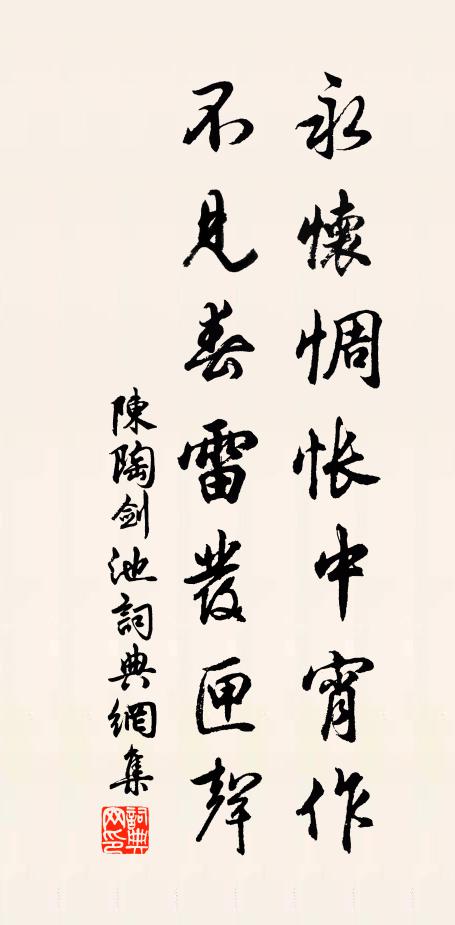 永懷惆悵中宵作
不見春雷發匣聲
陳陶劍池詞典網集
詞典網印